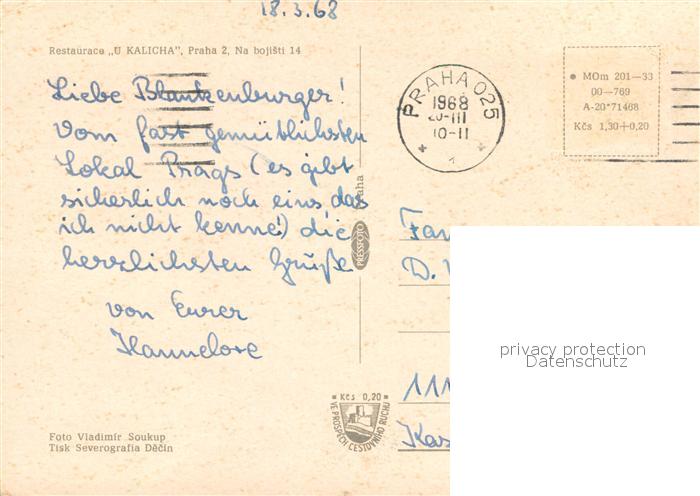 18.3.68
Restaurace „U KALICHA", Praha 2, Na bojišti 14
Liebe Blankenburger!
Vom fast gemütlichsten
Lokal Prags (es gibt
sicherlich noch eins, das
ich nicht kenne!) die
herzlichsten Grüße
von Eurer
Hannelore
Foto Vladimír Soukup
Tisk Severografia Děčín
PRESSFOTO Praha
Kčs 0,20
VE PROSPĚCH CESTOVNÍHO RUCHU
PRAHA 025
1968
20-III
10-11
1
MOm 201—33
00—769
A-20*71468
Kčs 1,30+0,20
Fam
D.
111
Kas
privacy protection
Datenschutz